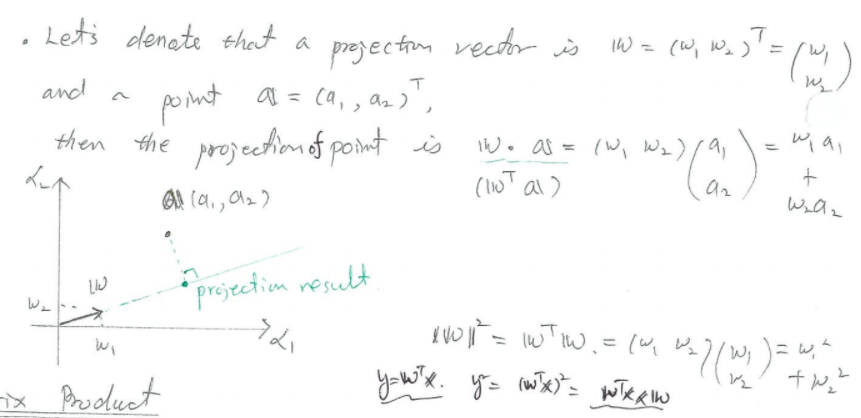 • Let's denote that a projection vector is 𝕨 = (w₁ w₂)ᵀ = (w₁ w₂)
and a point 𝕒 = (a₁, a₂)ᵀ,
then the projection of point is 𝕨 · 𝕒 = (w₁ w₂) (a₁ a₂) = w₁a₁ + w₂a₂
(𝕨ᵀ 𝕒)
α₂
𝕒 (a₁, a₂)
𝕨
projection result.
w₂
w₁
α₁
‖𝕨‖² = 𝕨ᵀ𝕨. = (w₁ w₂) (w₁ w₂) = w₁² + w₂²
y=𝕨ᵀ𝕩. y² = (𝕨ᵀ𝕩)² = 𝕨ᵀ𝕩𝕩𝕨
Product